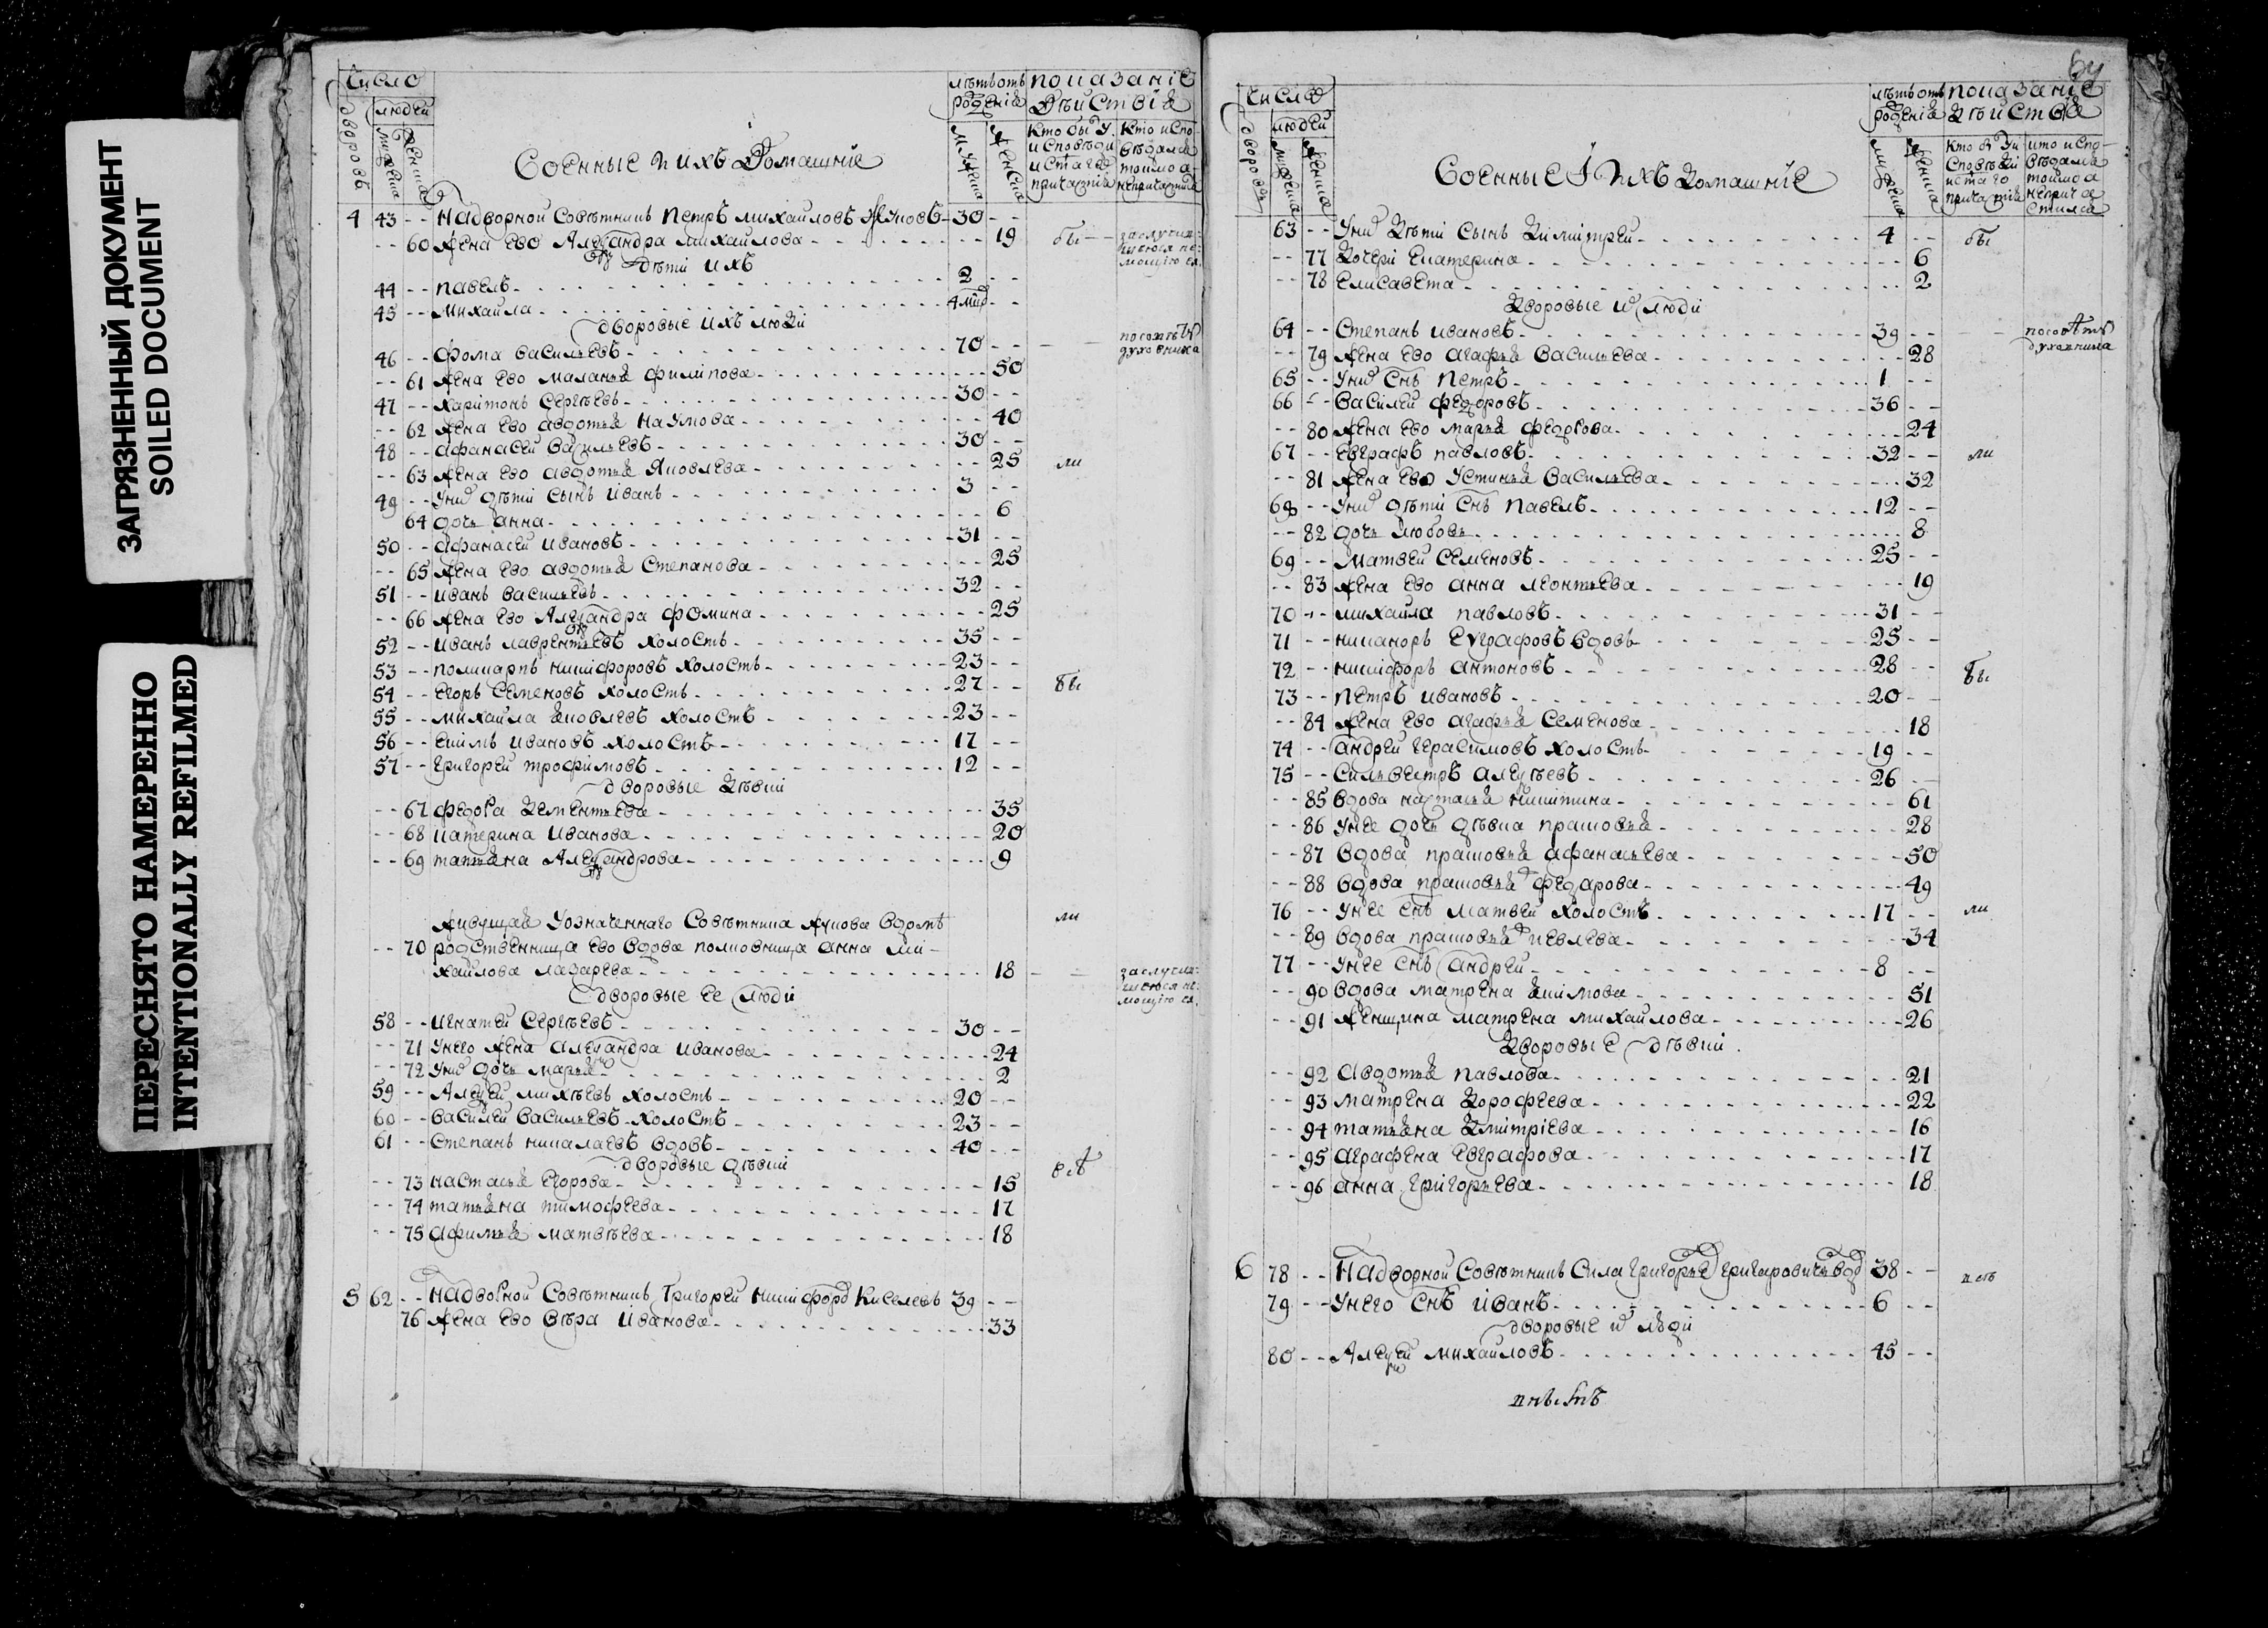 ЗАГРЯЗНЕННЫЙ ДОКУМЕНТ
SOILED DOCUMENT
ПЕРЕСНЯТО НАМЕРЕННО
INTENTIONALLY REFILMED
Число
людей
дворовъ
мужеска
женска
Военные и ихъ Домашнїе
лѣтъ отъ рожденїя
мужеска
женска
показанїе
дѣйствїя
кто былъ у исповѣди и святаго причастїя
кто исповѣдался токмо а не причастился
4 43 -- Надворной Совѣтникъ Петръ михайловъ Жуковъ 30 --
-- 60 жена ево Александра михайлова 19 бы
дѣти ихъ
44 -- павелъ 2 --
45 -- михайла 4 мцъ --
дворовые ихъ люди
46 -- фома васильевъ 70 -- по совѣту духовника
-- 61 жена ево маланья филипова 50
47 -- харитонъ сергѣевъ 30 --
-- 62 жена ево авдотья наумова 40
48 -- афанасей васильевъ 30 --
-- 63 жена ево авдотья яковлева 25 ли
49 -- у нихъ дѣти сынъ иванъ 3
64 дочь анна 6
50 -- афанасей ивановъ 31 --
-- 65 жена ево авдотья степанова 25
51 -- иванъ васильевъ 32 --
-- 66 жена ево Александра фомина 25
52 -- иванъ лаврентьевъ холостъ 35 --
53 -- поликарпъ никифоровъ холостъ 23 --
54 -- егоръ семеновъ холостъ 27 -- бы
55 -- михайла яковлевъ холостъ 23 --
56 -- екимъ ивановъ холостъ 17 --
57 -- григорей трофимовъ 12 --
дворовые дѣвки
-- 67 федора дементьева 35
-- 68 катерина иванова 20
-- 69 татьяна Александрова 9
живущая у означеннаго совѣтника жукова вдомѣ ли
-- 70 родственница ево вдова полковница анна ми-
хайлова лазарева 18
дворовые ее люди
58 -- игнатей сергѣевъ 30 --
-- 71 у него жена александра иванова 24
-- 72 у нихъ дочь марья 2
59 -- Алексей михѣевъ холостъ 20 --
60 -- василей васильевъ холостъ 23 --
61 -- степанъ никалаевъ вдовъ 40 --
дворовые дѣвки
-- 73 настасья егорова 15
-- 74 татьяна тимофеева 17
-- 75 афимья матвѣева 18
5 62 -- Надворной Совѣтникъ Григорей никифоровъ Киселевъ 39 --
76 жена ево вѣра иванова 33
64
Число
людей
дворовъ
мужеска
женска
Военные и ихъ домашнїе
лѣтъ отъ рожденїя
мужеска
женска
показанїе
дѣйства
кто былъ у исповѣди и святаго причастїя
кто исповѣдался токмо а не причастился
63 -- у нихъ дѣти сынъ димитрей 4 -- бы
-- 77 дочери екатерина 6
-- 78 елисавета 2
дворовые ихъ люди
64 -- степанъ ивановъ 39 -- по совѣту духовника
-- 79 жена ево агафья васильева 28
65 -- у нихъ снъ петръ 1 --
66 -- василей федоровъ 36 --
-- 80 жена ево марья федорова 24
67 -- евграфъ павловъ 32 -- ли
-- 81 жена ево устинья васильева 32
68 -- у нихъ дѣти снъ павелъ 12 --
-- 82 дочь любовь 8
69 -- матвей семеновъ 25 --
-- 83 жена ево анна леонтьева 19
70 -- михайла павловъ 31 --
71 -- никаноръ евграфовъ вдовъ 25 --
72 -- никифоръ антоновъ 28 -- бы
73 -- петръ ивановъ 20 --
-- 84 жена ево агафья семенова 18
74 -- андрей герасимовъ холостъ 19 --
75 -- сильвестръ алексѣевъ 26 --
-- 85 вдова настасья никитина 61
-- 86 у нее дочь дѣвка прасковья 28
-- 87 вдова прасковья афанасьева 50
-- 88 вдова прасковья федарова 49
76 -- у нее снъ матвей холостъ 17 -- ли
-- 89 вдова прасковья иевлева 34
77 -- у нее снъ андрей 8 --
-- 90 вдова матрена якимова 51
-- 91 женщина матрена михайлова 26
дворовые дѣвки
-- 92 авдотья павлова 21
-- 93 матрена дорофеева 22
-- 94 татьяна дмитрїева 16
-- 95 аграфена евграфова 17
-- 96 анна григорьева 18
6 78 -- Надворной Совѣтникъ Сила григорьевъ 38 --
79 -- у него снъ иванъ 6 --
дворовые ихъ люди
80 -- Алексей михайловъ 45 --